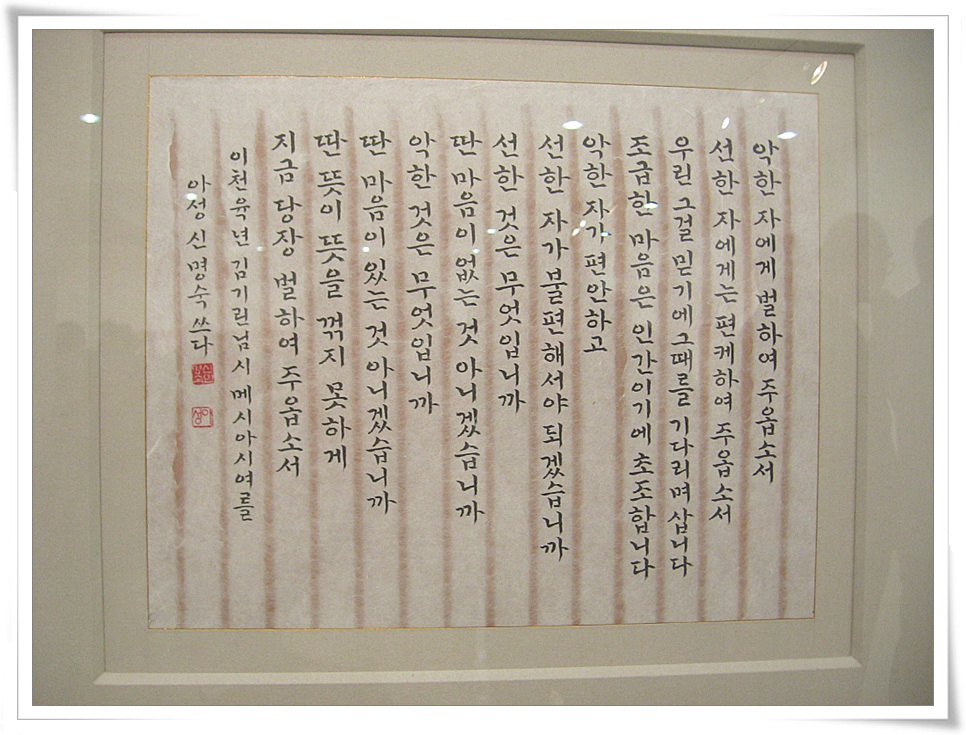 악한 자에게 벌하여 주옵소서
선한 자에게는 편케하여 주옵소서
우린 그걸 믿기에 그때를 기다리며 삽니다
조급한 마음은 인간이기에 초조합니다
악한 자가 편안하고
선한 자가 불편해서야 되겠습니까
선한 것은 무엇입니까
딴 마음이 없는 것 아니겠습니까
악한 것은 무엇입니까
딴 마음이 있는 것 아니겠습니까
딴 뜻이 뜻을 꺾지 못하게
지금 당장 벌하여 주옵소서
이천육년 김기린님 시 메시아시여를
아성 신명숙 쓰다